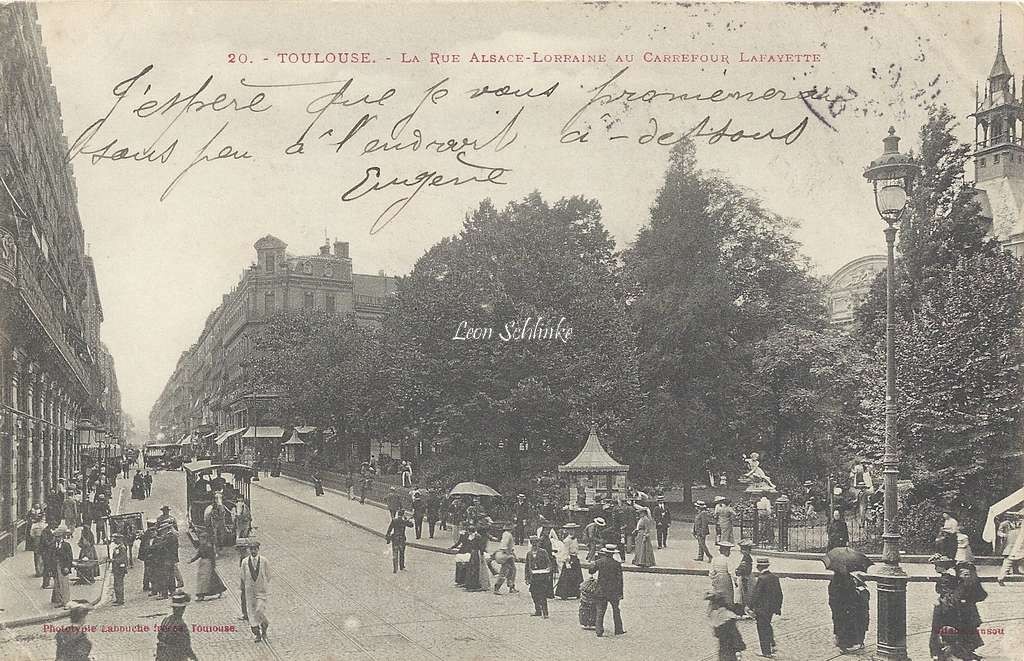 20. - TOULOUSE. - La Rue Alsace-Lorraine au Carrefour Lafayette
J'espère que je vous promènerai
sous peu à l'endroit ci-dessous
Eugène
Léon Schlinke
Phototypie Labouche frères, Toulouse.